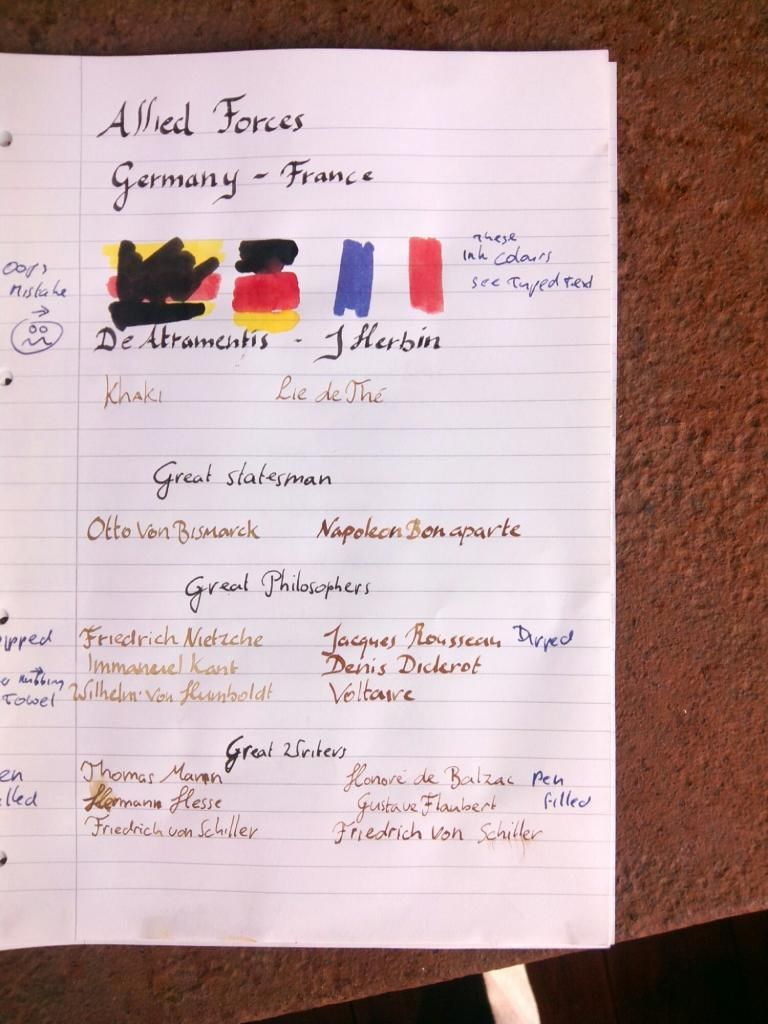 Allied Forces
Germany - France
these
ink colours
see Typed text
Oops
Mistake
De Atramentis - J Herbin
Khaki Lie de Thé
Great statesman
Otto Von Bismarck Napoleon Bonaparte
Great Philosophers
Friedrich Nietzche Jacques Rousseau Dipped
Immanuel Kant Denis Diderot
Towel Wilhelm von Humboldt Voltaire
Great Writers
Thomas Mann Honoré de Balzac Pen
Hermann Hesse Gustave Flaubert filled
Friedrich von Schiller Friedrich von Schiller